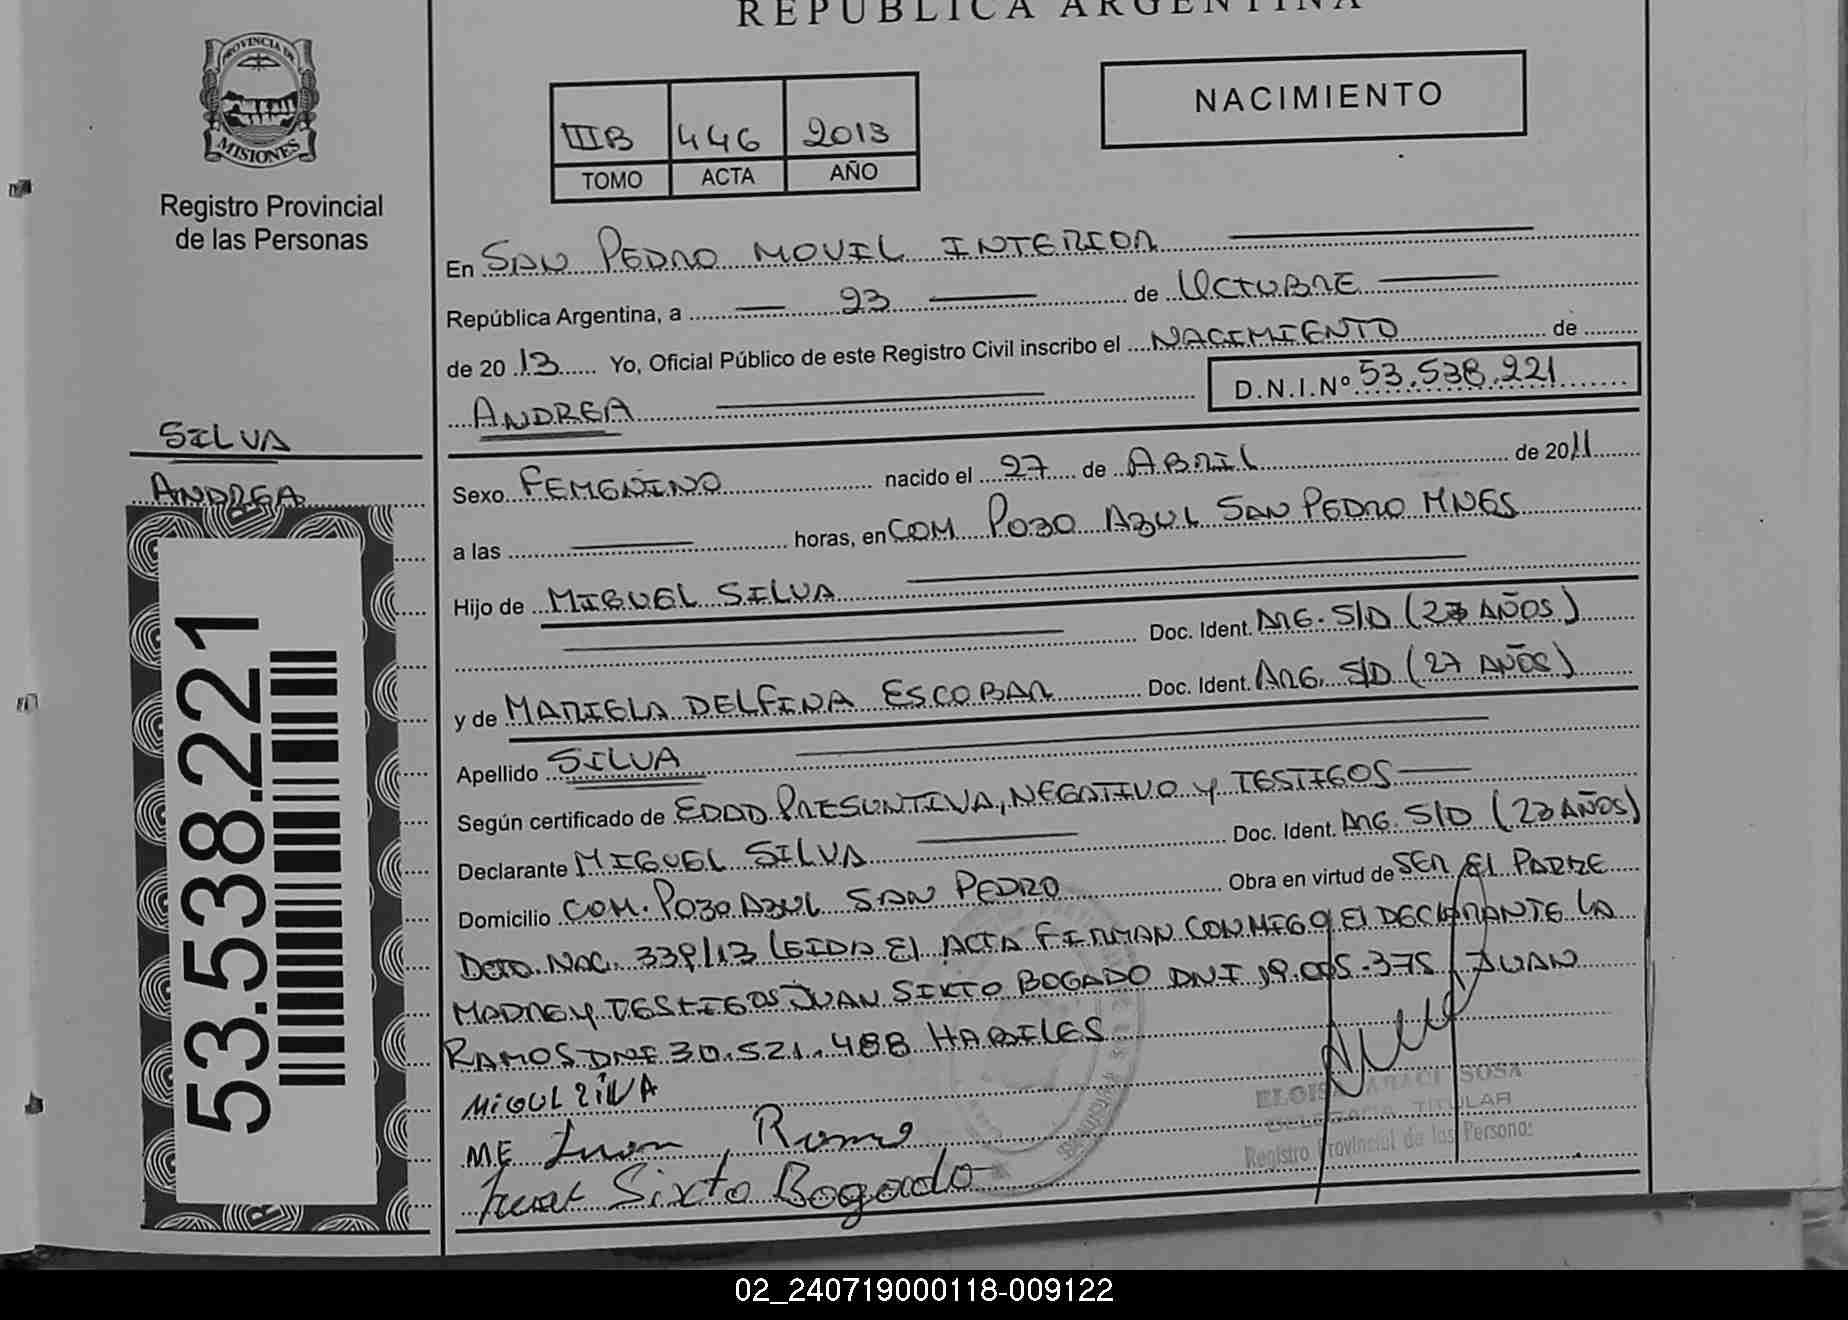 REPÚBLICA ARGENTINA
PROVINCIA DE
MISIONES
Registro Provincial
de las Personas
NACIMIENTO
IIIB 446 2013
TOMO ACTA AÑO
En SAN PEDRO MOVIL INTERIOR
República Argentina, a 23 de OCTUBRE
de 2013 Yo, Oficial Público de este Registro Civil inscribo el NACIMIENTO de
ANDREA D.N.I.Nº 53.538.221
SILVA
ANDREA
53.538.221
Sexo FEMENINO nacido el 27 de ABRIL de 2011
a las horas, en COM POZO AZUL SAN PEDRO MNES
Hijo de MIGUEL SILVA
Doc. Ident. ARG. S/D (23 AÑOS)
y de MARIELA DELFINA ESCOBAR Doc. Ident. ARG. S/D (27 AÑOS)
Apellido SILVA
Según certificado de EDAD PRESUNTIVA, NEGATIVO Y TESTIGOS
Declarante MIGUEL SILVA Doc. Ident. ARG. S/D (23 AÑOS)
Domicilio COM. POZO AZUL SAN PEDRO Obra en virtud de SER EL PADRE
DCTO. NAC. 339/13 LEIDA EL ACTA FIRMAN CONMIGO EL DECLARANTE LA
MADRE Y TESTIGOS JUAN SIXTO BOGADO DNI 19.005.375 JUAN
RAMOS DNI 30.521.488 HABILES
MIGUL ZILVA
ME Juan Ramos
Juan Sixto Bogado
SOSA
TITULAR
Registro Provincial de las Personas
02_240719000118-009122